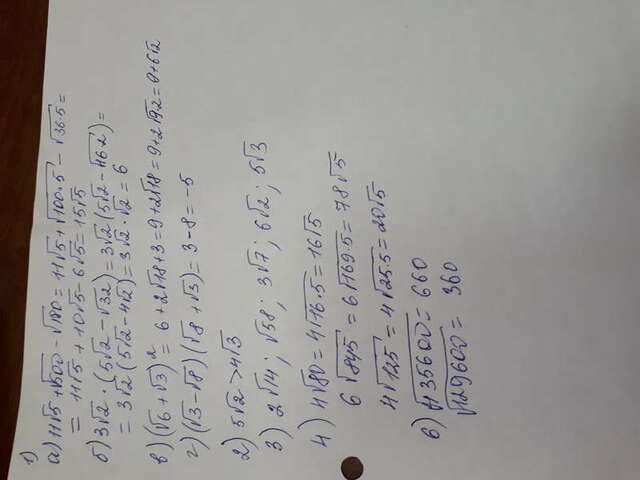 1)
а) 11√5 + √500 - √180 = 11√5 + √100·5 - √36·5 =
= 11√5 + 10√5 - 6√5 = 15√5
б) 3√2 · (5√2 - √32) = 3√2 (5√2 - √16·2) =
= 3√2 (5√2 - 4√2) = 3√2 · √2 = 6
в) (√6 + √3)² = 6 + 2√18 + 3 = 9 + 2√18 = 9 + 2√9·2 = 9 + 6√2
г) (√3 - √8) (√8 + √3) = 3 - 8 = -5
2) 5√2 > 4√3
3) 2√14 ; √58 ; 3√7 ; 6√2 ; 5√3
4) 4√80 = 4√16·5 = 16√5
6√845 = 6√169·5 = 78√5
4√125 = 4√25·5 = 20√5
6) √435600 = 660
√129600 = 360